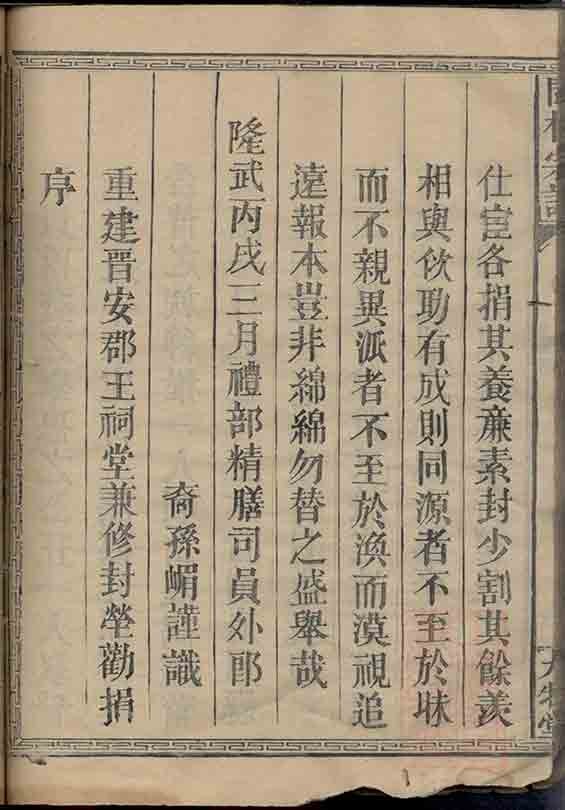 仕宦各捐其養亷素封少割其餘羨
相與佽助有成則同源者不至於昧
而不親異派者不至於渙而漠視追
遠報本豈非綿綿勿替之盛舉哉
隆武丙戌三月禮部精膳司員外郎
裔孫嵋謹識
重建晋安郡王祠堂兼修封塋勸捐
序